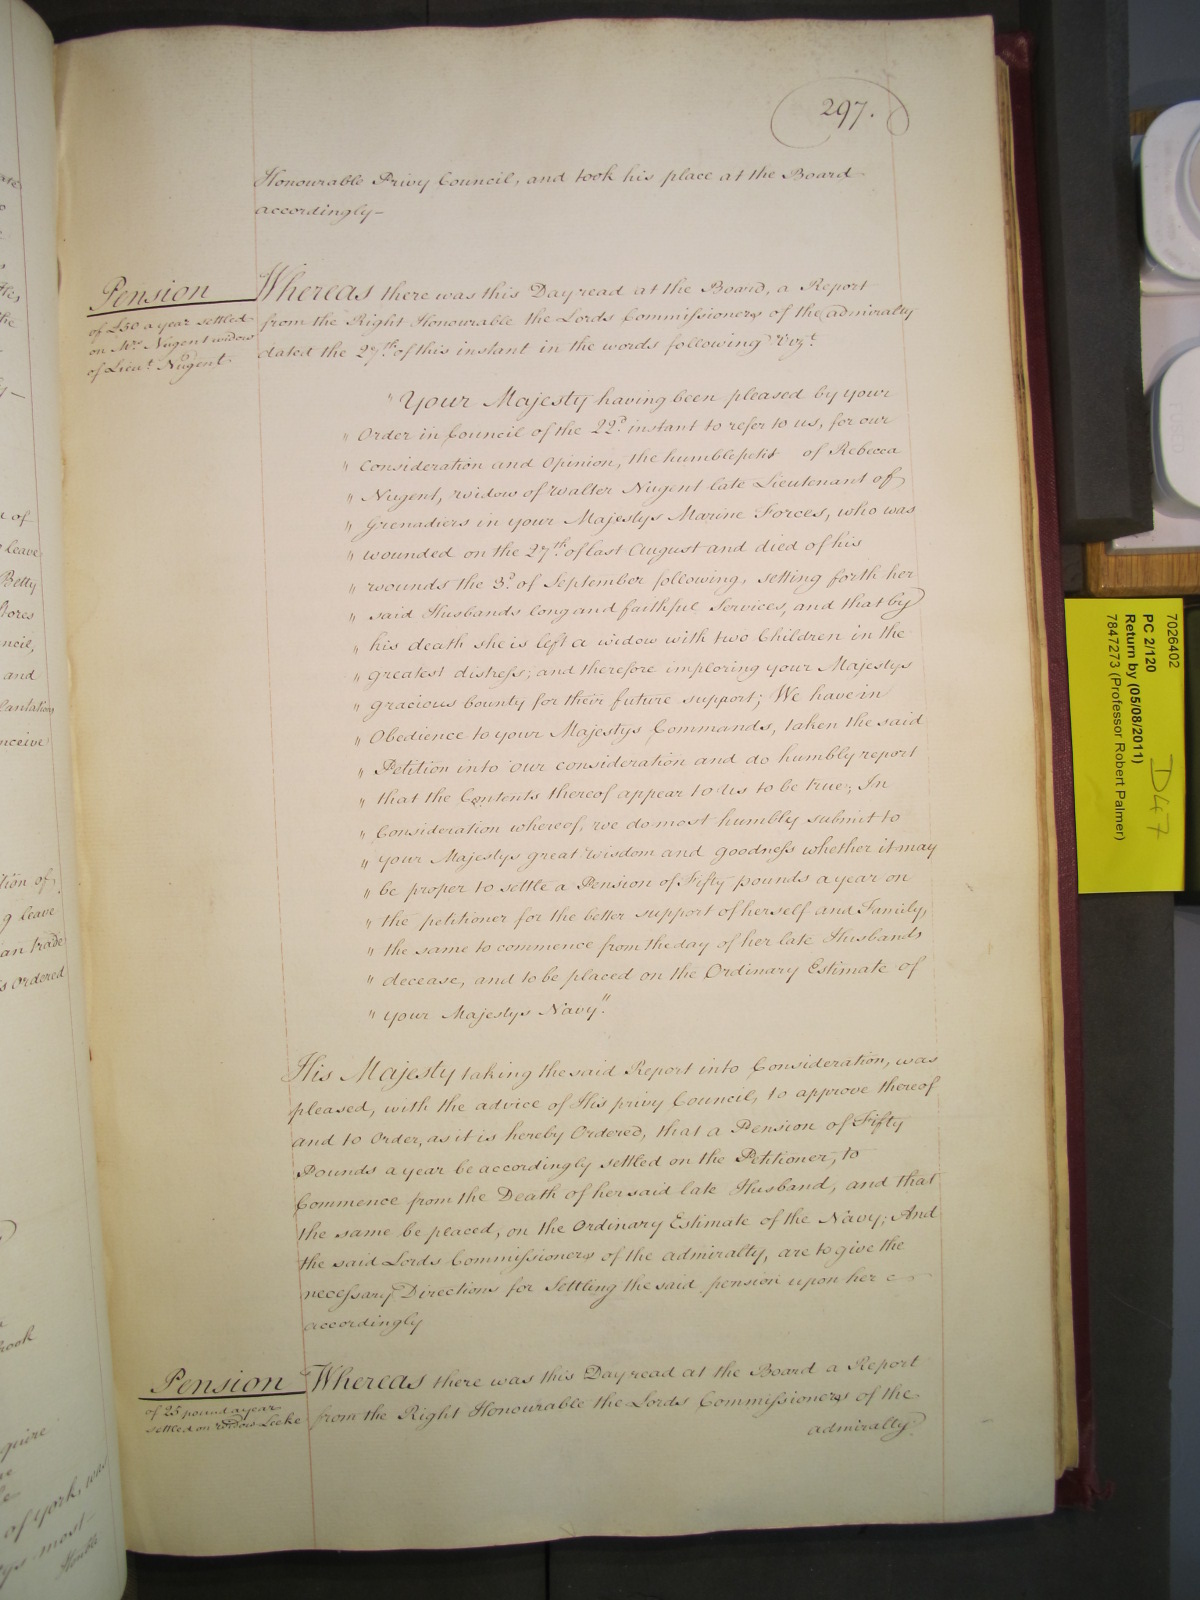 297.
Honourable Privy Council, and took his place at the Board
accordingly-
Pension
of £50 a year settled
on Mrs. Nugent widow
of Lieut. Nugent.
Whereas there was this Day read at the Board, a Report
from the Right Honourable the Lords Commissioners of the admiralty
dated the 27th. of this instant in the words following Vizt.
" Your Majesty having been pleased by your
" Order in Council of the 22d. instant to refer to us, for our
" Consideration and Opinion, the humble petit of Rebecca
" Nugent, widow of Walter Nugent late Lieutenant of
" Grenadiers in your Majestys Marine Forces, who was
" wounded on the 27th. of last August and died of his
" wounds the 3d. of September following, setting forth her
" said Husbands long and faithful Services, and that by
" his death she is left a widow with two Children in the
" greatest distress; and therefore imploring your Majestys
" gracious bounty for their future support; We have in
" Obedience to your Majestys Commands, taken the said
" Petition into our consideration and do humbly report
" that the Contents thereof appear to us to be true; In
" Consideration whereof, we do most humbly submit to
" your Majestys great Wisdom and goodness whether it may
" be proper to settle a Pension of Fifty pounds a year on
" the petitioner for the better support of herself and Family,
" the same to commence from the day of her late Husbands
" decease, and to be placed on the Ordinary Estimate of
" your Majestys Navy."
His Majesty taking the said Report into Consideration, was
pleased, with the advice of His privy Council, to approve thereof
and to Order, as it is hereby Ordered, that a Pension of Fifty
Pounds a year be accordingly settled on the Petitioner, to
Commence from the Death of her said late Husband, and that
the same be placed, on the Ordinary Estimate of the Navy; And
the said Lords Commissioners of the admiralty, are to give the
necessary Directions for Settling the said pension upon her
accordingly
Pension
of 25 pound a year
settled on Widow Leeke
Whereas there was this Day read at the Board a Report
from the Right Honourable the Lords Commissioners of the
admiralty
7026402
PC 2/120
Return by (05/08/2011)
7847273 (Professor Robert Palmer)
D47
of
leave
Betty
and
tion of
g leave
an trade
s ordered
of York, was
most